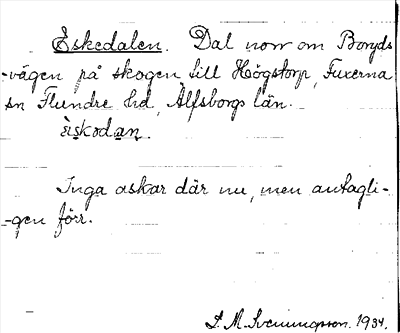 Eskedalen. Dal norr om Bonyds
-vägen på skogen till Högstorp, Fuxerna
sn Flundre hd, Älfsborgs län.
èskodan.
Inga askar där nu, men antagli-
-gen förr.
S. M. Svenningsson. 1934.